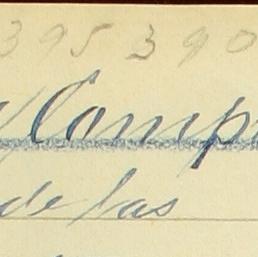 395 390
Comp
de las